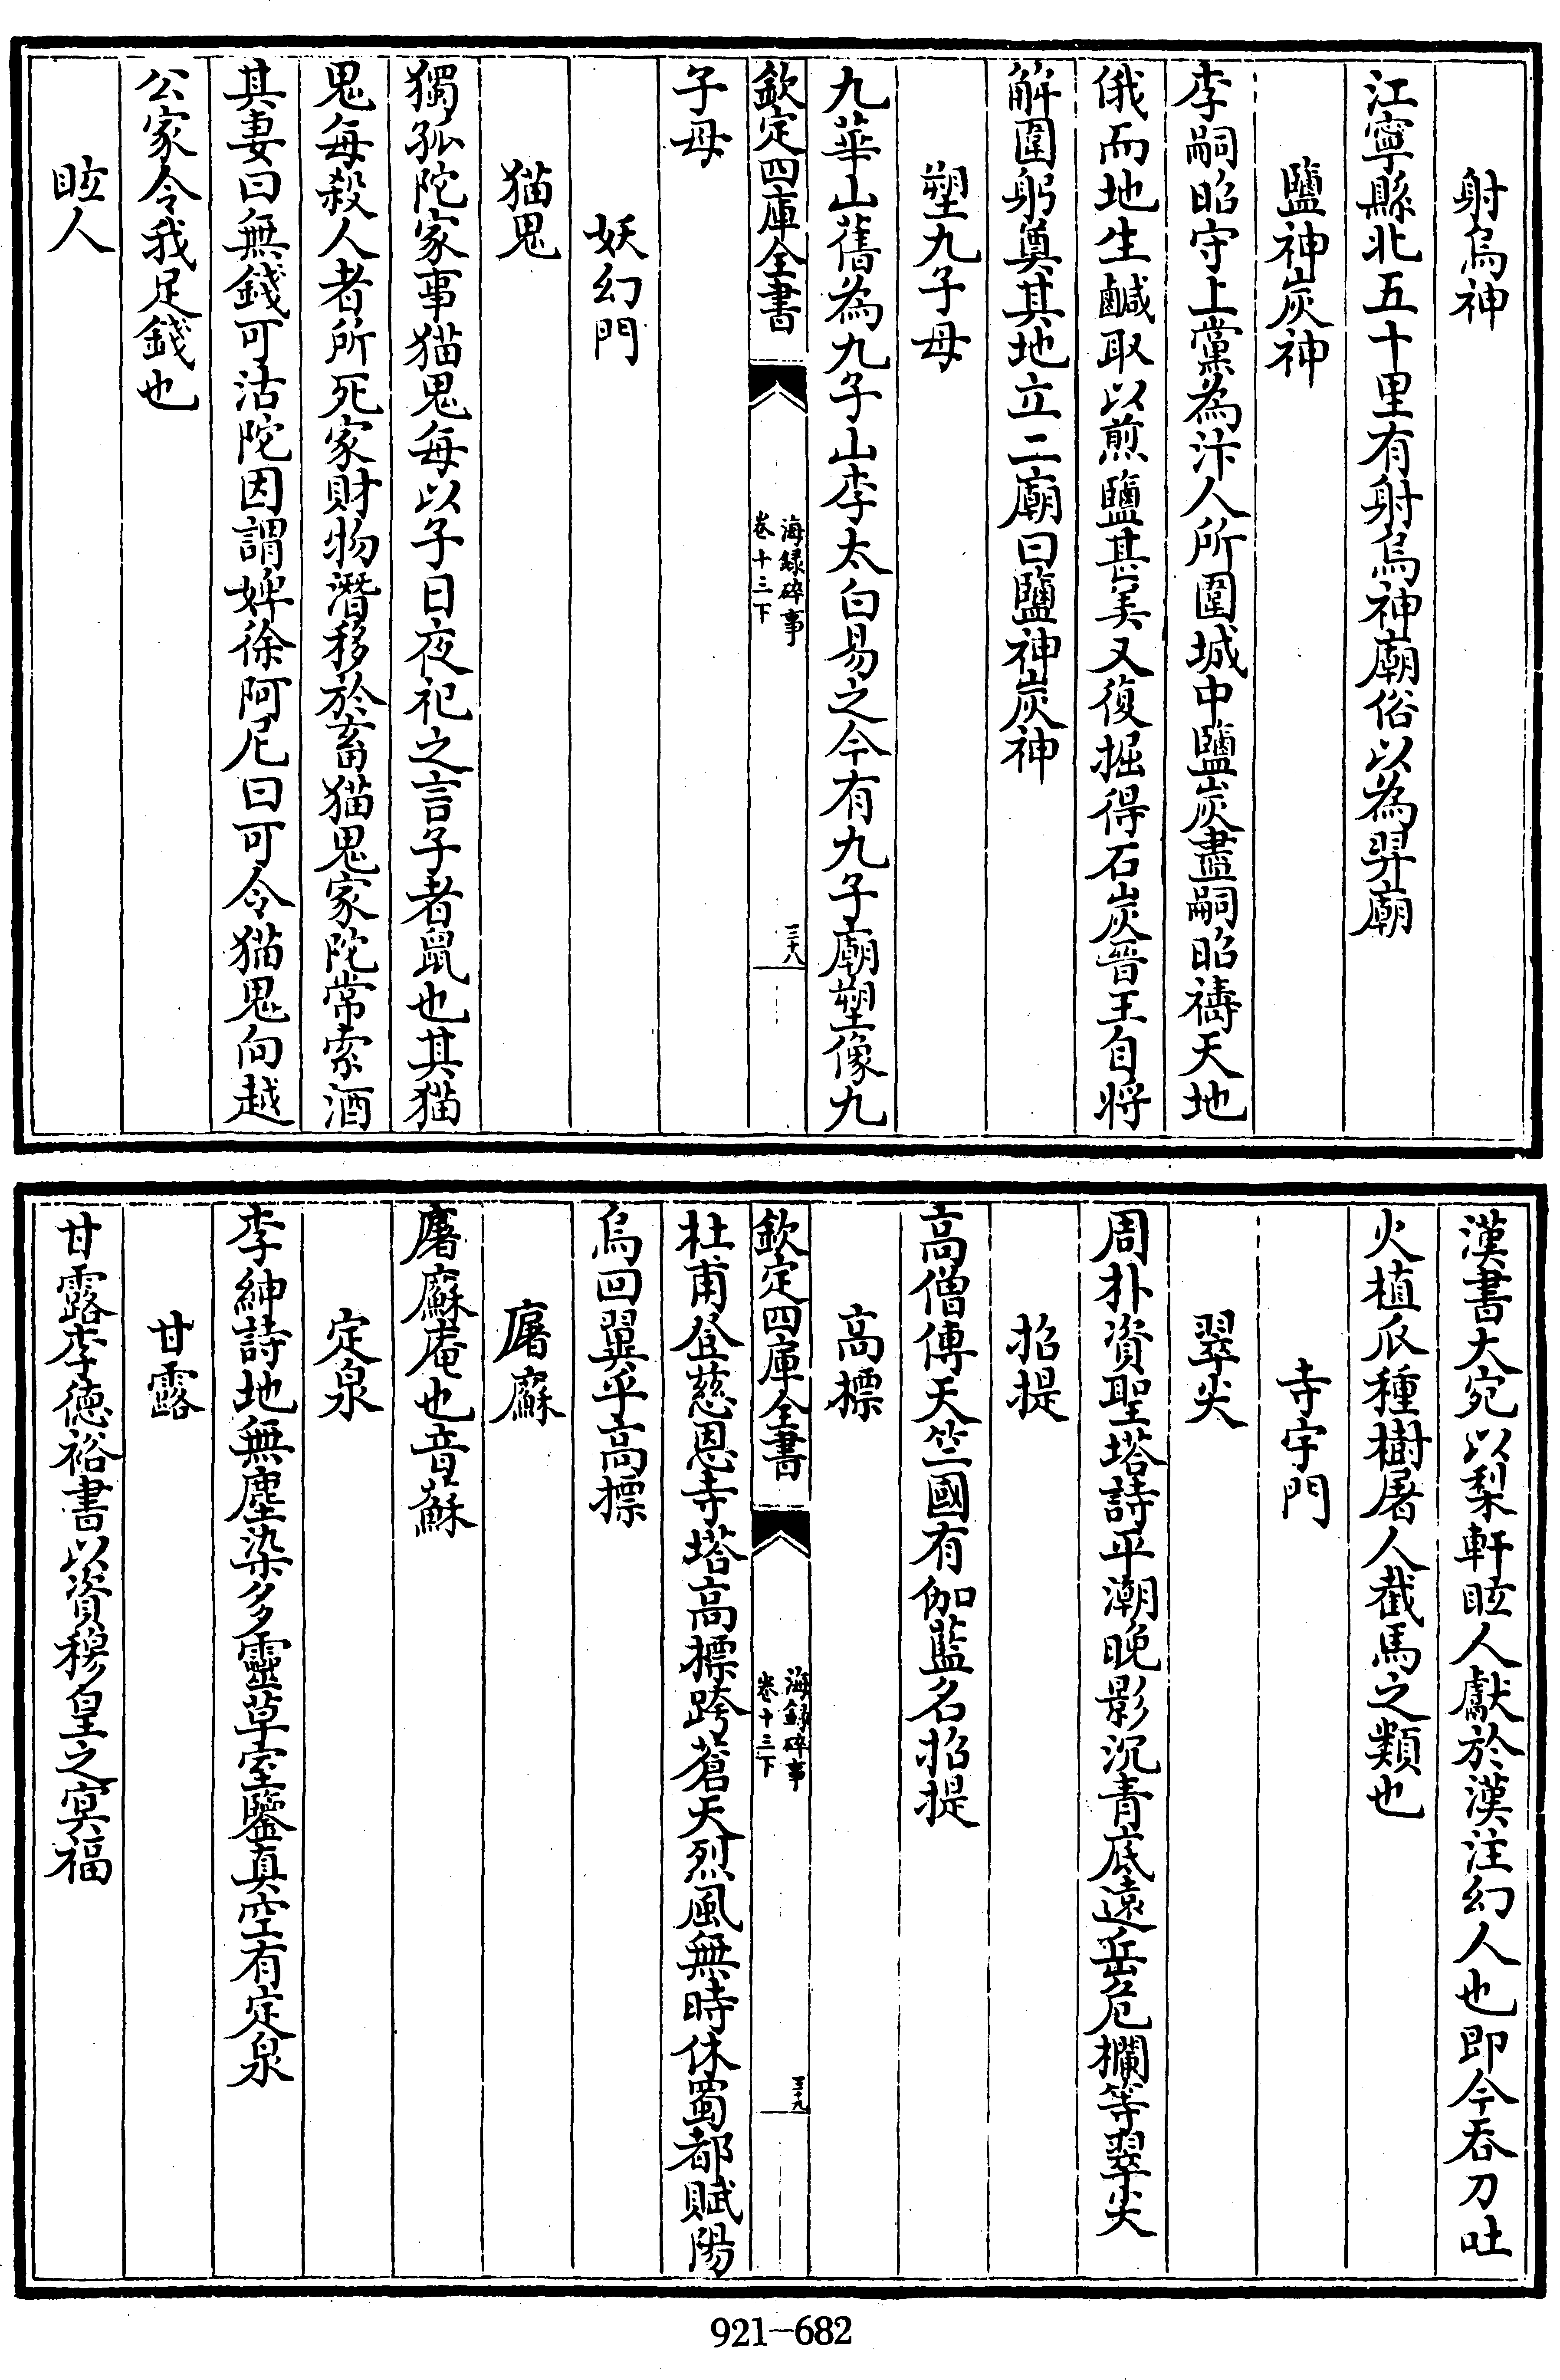 射烏神
江寧縣北五十里有射烏神廟俗以為羿廟
鹽神炭神
李嗣昭守上黨為汴人所圍城中鹽炭盡嗣昭禱天地
俄而地生鹹取以煎鹽甚美又復掘得石炭晉王自將
解圍躬奠其地立二廟曰鹽神炭神
塑九子母
九華山舊為九子山李太白易之今有九子廟塑像九
欽定四庫全書
海録碎事
卷十三下
三十八
子母
妖幻門
猫鬼
獨孤陀家事猫鬼每以子日夜祀之言子者鼠也其猫
鬼每殺人者所死家財物潛移於畜猫鬼家陀常索酒
其妻曰無錢可沽陀因謂婢徐阿尼曰可令猫鬼向越
公家令我足錢也
眩人
漢書大宛以犁軒眩人獻於漢注幻人也即今吞刀吐
火植瓜種樹屠人截馬之類也
寺宇門
翠尖
周朴資聖塔詩平潮晚影沉青底遠岳危欄等翠尖
招提
高僧傳天竺國有伽藍名招提
高標
欽定四庫全書
海録碎事
卷十三下
三十九
杜甫登慈恩寺塔高標跨蒼天烈風無時休蜀都賦陽
烏回翼乎高標
廜㢝
廜㢝庵也音蘇
定泉
李紳詩地無塵染多靈草室鑒真空有定泉
甘露
甘露李德裕書以資穆皇之㝠福
921-682